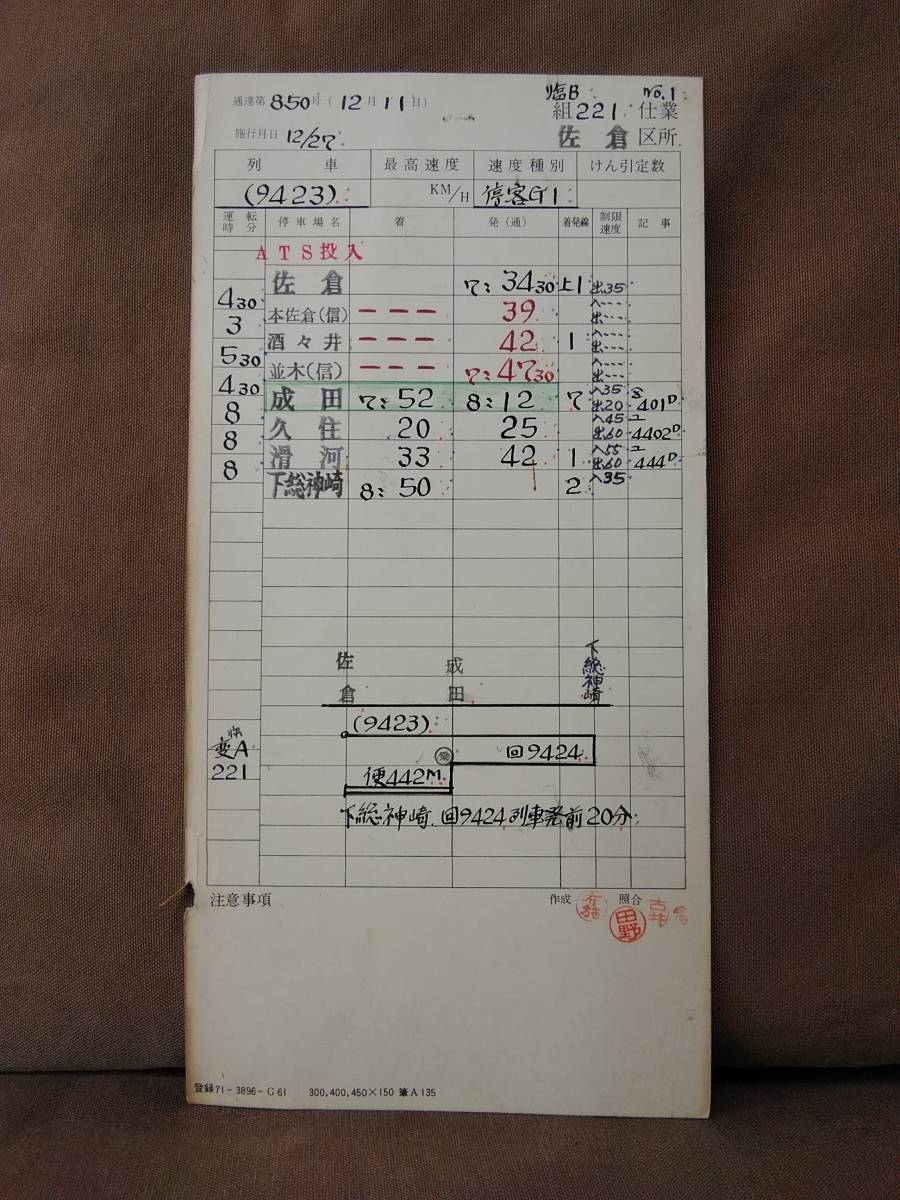 通達第850号(12月11日) 臨B No.1
組221 仕業
施行月日 12/27 佐倉 区所
列車 最高速度 速度種別 けん引定数
(9423) KM/H 停客G1
運転時分 停車場名 着 発(通) 着発線 制限速度 記事
ATS投入
佐倉 7:34 30 上1 出35
4 30
本佐倉(信) --- 39 入--- 出---
3
酒々井 --- 42 1 入--- 出---
5 30
並木(信) --- 7:47 30 入--- 出---
4 30
成田 7:52 8:12 7 入35 出20 401D
8
久住 20 25 入45 出60 4402D
8
滑河 33 42 1 入55 出60 444D
8
下総神崎 8:50 2 入35
佐倉 成田 下総神崎
(9423)
変A 回9424
221 便442M
下総神崎 回9424列車発前20分
注意事項 作成 照合
田野
登録71-3896-G61 300,400,450×150 筆A135